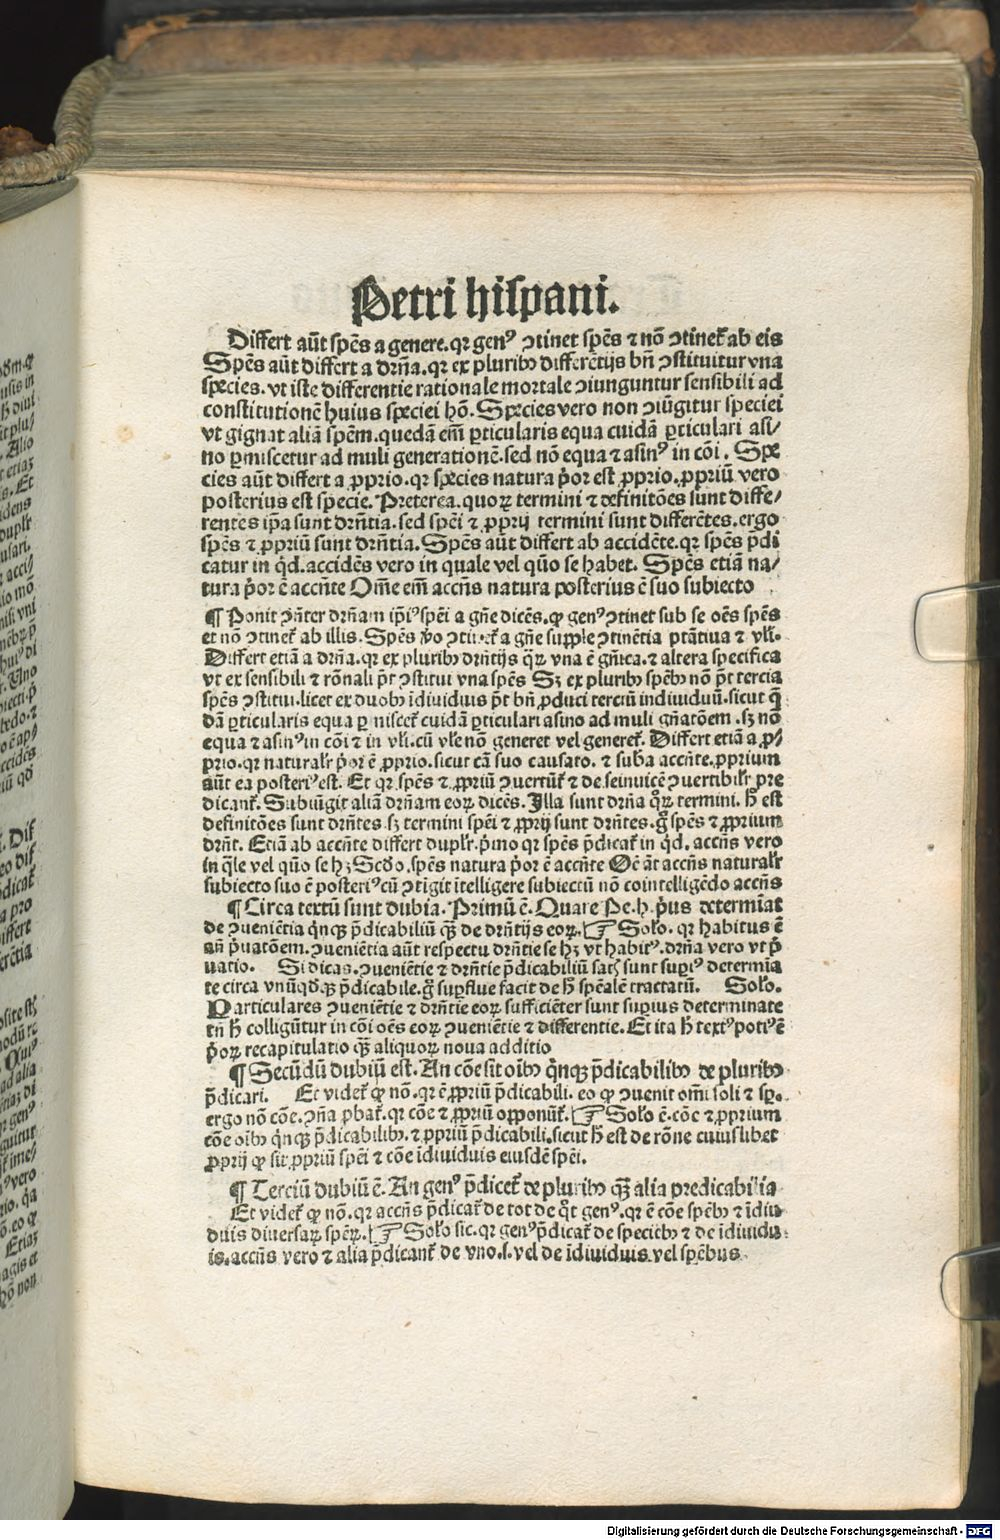 Petri hiſpani.
Differt aūt ſpēs a genere. qꝛ genꝰ ↄtinet ſpēs ⁊ nō ↄtinet᷑ ab eis
Spēs aūt differt a drn̄a. qꝛ ex pluribꝰ differētijs bn̄ ↄſtituitur vna
ſpecies. vt iſte differentie rationale mortale ↄiunguntur ſenſibili ad
conſtitutionē huius ſpeciei hō. Species vero non ↄiūgitur ſpeciei
vt gignat aliā ſpēm. quedā em̄ ꝑticularis equa cuidā ꝑticulari aſi/
no ꝑmiſcetur ad muli generationē. ſed nō equa ⁊ aſinꝰ in cōi. Spe
cies aūt differt a ꝓprio. qꝛ ſpecies natura p̄or eſt ꝓprio. ꝓpriū vero
poſterius eſt ſpecie. Preterea. quoꝝ termini ⁊ definitōes ſunt diffe/
rentes ip̄a ſunt drn̄tia. ſed ſpēi ⁊ ꝓprij termini ſunt differētes. ergo
ſpēs ⁊ ꝓpriū ſunt drn̄tia. Spēs aūt differt ab accidēte. qꝛ ſpēs p̄di
catur in qd̄. accidēs vero in quale vel quō ſe habet. Spēs etiā na/
tura p̄or ē accn̄te Om̄e em̄ accn̄s natura poſterius ē ſuo ſubiecto
¶ Ponit ↄn̄ter drn̄am ip̄iꝰ ſpēi a gn̄e dicēs. ꝙ genꝰ ↄtinet ſub ſe oēs ſpēs
et nō ↄtinet᷑ ab illis. Spēs v̄o ↄtinet᷑ a gn̄e ſupple ↄtinētia ptātiua ⁊ vl̄i.
Differt etiā a drn̄a. qꝛ ex pluribꝰ drn̄tijs qꝝ vna ē gn̄ica. ⁊ altera ſpecifica
vt ex ſenſibili ⁊ rōnali p̄t ↄſtitui vna ſpēs Sꝫ ex pluribꝰ ſpēbꝰ nō p̄t tercia
ſpēs ↄſtitui. licet ex duobꝰ īdiuiduis p̄t bn̄ ꝓduci terciū indiuiduū. ſicut q̄
dā ꝑticularis equa ꝑmiſcet᷑ cuidā ꝑticulari aſino ad muli gn̄atōem. ſꝫ nō
equa ⁊ aſinꝰ in cōi ⁊ in vl̄i. cū vl̄e nō generet vel generet᷑. Differt etiā a ꝓ/
prio. qꝛ naturalr̄ p̄or ē ꝓprio. ſicut cā ſuo cauſato. ⁊ ſub̄a accn̄te. ꝓprium
aūt ea poſteriꝰ eſt. Et qꝛ ſpēs ⁊ ꝓpriū ↄuertūt᷑ ⁊ de ſeinuicē ↄuertibilr̄ pre
dicant᷑. Subiūgit aliā drn̄am eoꝝ dicēs. Illa ſunt drn̄a qꝝ termini. h̄ eſt
definitōes ſunt drn̄tes. ſꝫ termini ſpēi ⁊ ꝓprij ſunt drn̄tes. g̊ ſpēs ⁊ ꝓprium
drn̄t. Etiā ab accn̄te differt duplr̄. p̄mo qꝛ ſpēs p̄dicat᷑ in qd̄. accn̄s vero
in q̄le vel quō ſe hꝫ Scd̄o. ſpēs natura p̄or ē accn̄te Oē āt accn̄s naturalr̄
ſubiecto ſuo ē poſteriꝰ cū ↄtīgit ītelligere ſubiectū nō cointelligēdo accn̄s
¶ Circa textū ſunt dubia. Primū ē. Quare Pe. h. p̄us determīat
de ↄueniētia qn̄qꝫ p̄dicabiliū qꝫ de drn̄tijs eoꝝ. ☞ Solo. qꝛ habitus ē
an̄ p̄uatōem. ↄueniētia aūt reſpectu drn̄tie ſe hꝫ vt habitꝰ. drn̄a vero vt p̄
uatio. Si dicas. ↄueniētie ⁊ drn̄tie p̄dicabiliū ſatꝭ ſunt ſuꝑiꝰ determīa
te circa vnūqd̄qꝫ p̄dicabile. g̊ ſuꝑflue facit de h̄ ſpēalē tractatū. Solo.
Particulares ↄueniētie ⁊ drn̄tie eoꝝ ſufficiēter ſunt ſuꝑius determinate
tn̄ h̄ colligūtur in cōi oēs eoꝝ ↄueniētie ⁊ differentie. Et ita h̄ textꝰ potiꝰ ē
p̄oꝝ recapitulatio qꝫ aliquoꝝ noua additio
¶ Secūdū dubiū eſt. An cōe ſit oībꝰ qn̄qꝫ p̄dicabilibꝰ de pluribꝰ
p̄dicari. Et videt᷑ ꝙ nō. qꝛ ē ꝓpriū p̄dicabili. eo ꝙ ↄuenit om̄i ſoli ⁊ ſꝑ.
ergo nō cōe. ↄn̄a ꝓbat᷑. qꝛ cōe ⁊ ꝓpriū opponūt᷑. ☞ Solo ē. cōe ⁊ ꝓprium
cōe oībꝰ qn̄qꝫ p̄dicabilibꝰ. ⁊ ꝓpriū p̄dicabili. ſicut h̄ eſt de rōne cuiuſlibet
ꝓprij ꝙ ſit ꝓpriū ſpēi ⁊ cōe īdiuiduis eiuſdē ſpēi.
¶ Terciū dubiū ē. An genꝰ p̄dicet᷑ de pluribꝰ qꝫ alia predicabilia
Et videt᷑ ꝙ nō. qꝛ accn̄s p̄dicat᷑ de tot de qͥt genꝰ. qꝛ ē cōe ſpēbꝰ ⁊ īdiui
duis diuerſaꝝ ſpēꝝ. ☞ Solo ſic. qꝛ genꝰ p̄dicat᷑ de ſpeciebꝰ ⁊ de īdiuidu
is. accn̄s vero ⁊ alia p̄dicant᷑ de vno. ſ. vel de īdiuiduis. vel ſpēbus
Digitalisierung gefördert durch die Deutsche Forschungsgemeinschaft - DFG